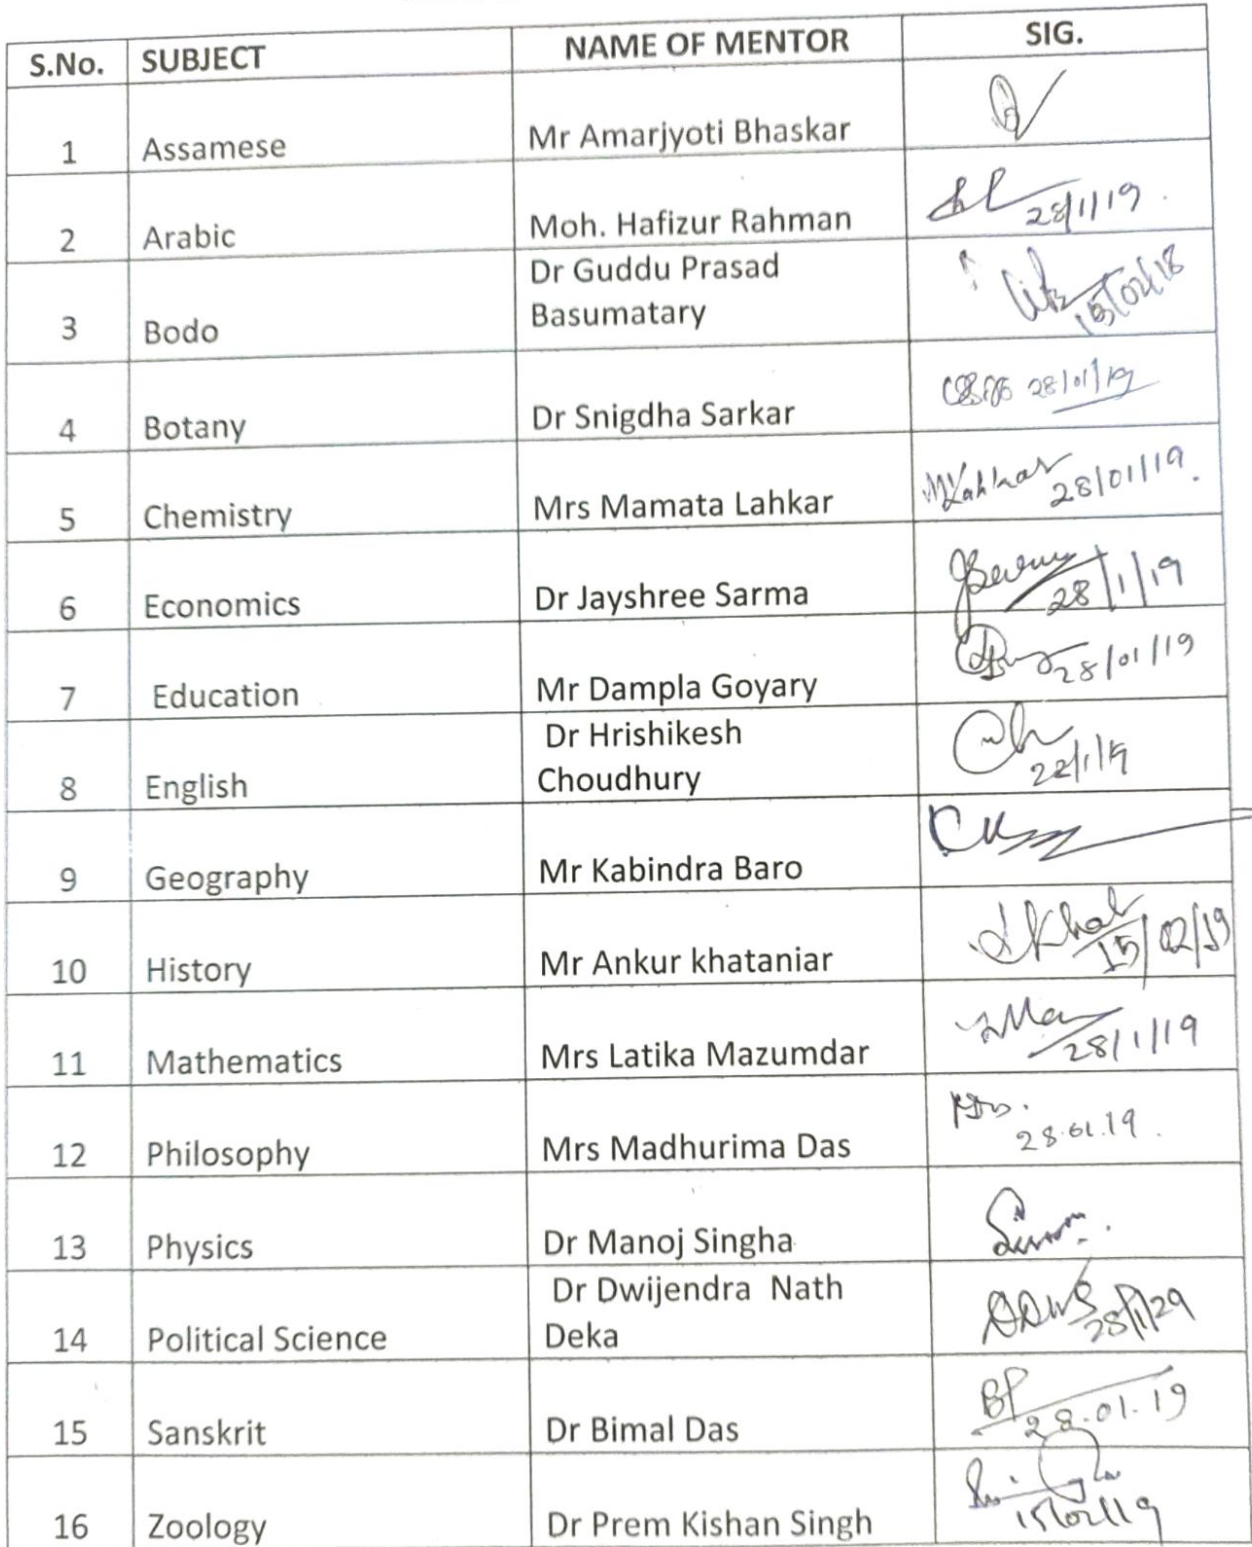 S.No. SUBJECT NAME OF MENTOR SIG.
1 Assamese Mr Amarjyoti Bhaskar
2 Arabic Moh. Hafizur Rahman 28/1/19
Dr Guddu Prasad
3 Bodo Basumatary 15/02/18
4 Botany Dr Snigdha Sarkar 28/01/19
5 Chemistry Mrs Mamata Lahkar MLahkar 28/01/19.
6 Economics Dr Jayshree Sarma 28/1/19
7 Education Mr Dampla Goyary 28/01/19
Dr Hrishikesh
8 English Choudhury 22/1/19
9 Geography Mr Kabindra Baro
10 History Mr Ankur khataniar 15/02/19
11 Mathematics Mrs Latika Mazumdar 28/1/19
12 Philosophy Mrs Madhurima Das 28.01.19.
13 Physics Dr Manoj Singha
Dr Dwijendra Nath
14 Political Science Deka 28/1/29
15 Sanskrit Dr Bimal Das 28.01.19
16 Zoology Dr Prem Kishan Singh 15/02/19